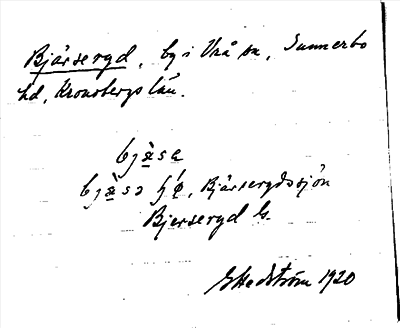 Bjärseryd, by i Vrå sn, Sunnerbo
hd, Kronobergs län.
bjæ̀sa
bjæ̀sə ʃǿ, Bjärserydssjön
Bjerseryd G.
G Hedström 1920